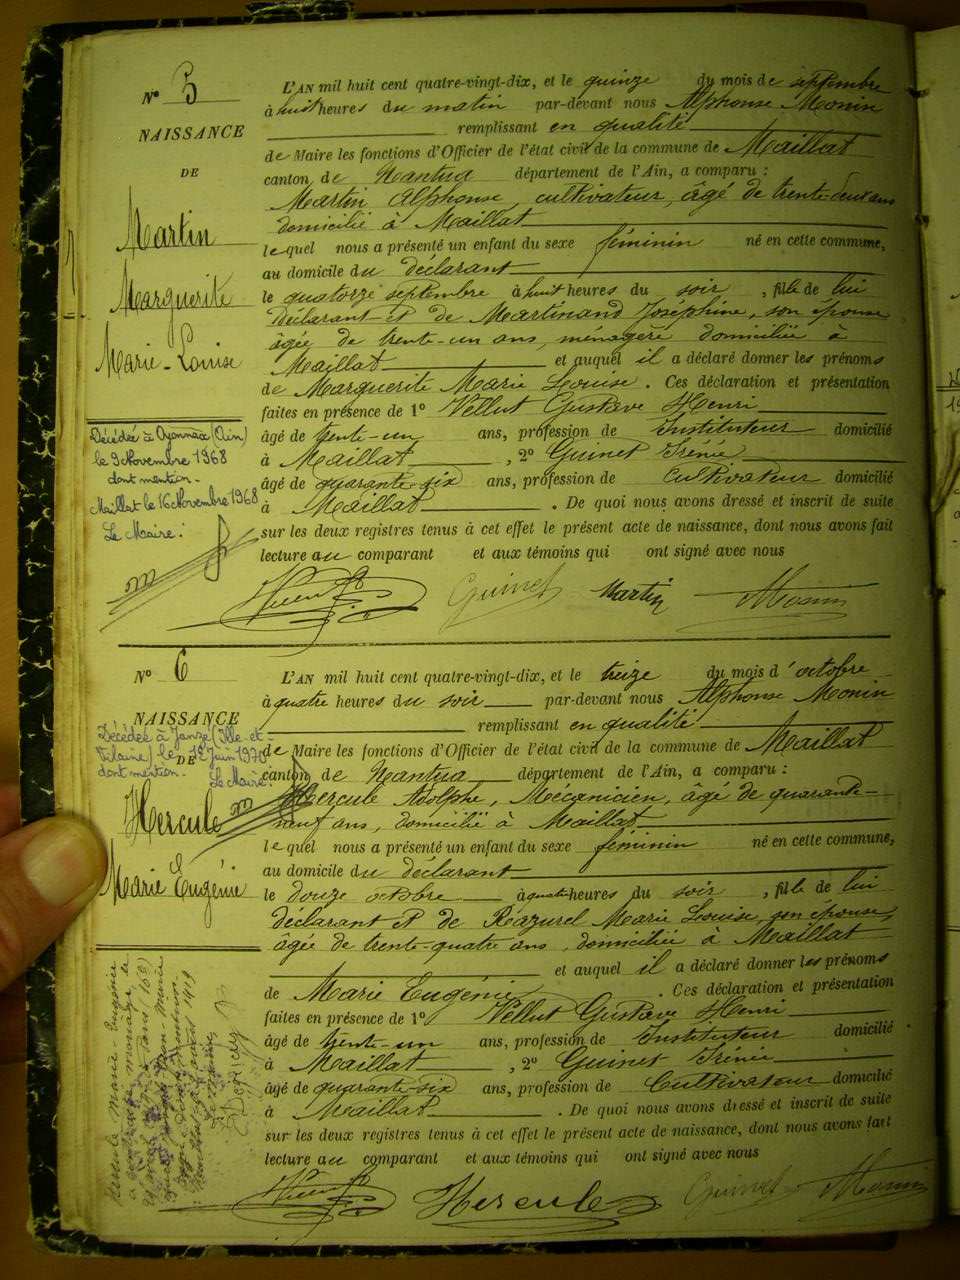 N° 5
NAISSANCE
DE
Martin
Marguerite
Marie-Louise
Décédée à Oyonnax (Ain)
le 9 Novembre 1968
dont mention.
Maillat le 16 Novembre 1968
Le Maire :
L'AN mil huit cent quatre-vingt-dix, et le quinze du mois de septembre
à huit heures du matin par-devant nous Alphonse Monin
remplissant en qualité
de Maire les fonctions d'Officier de l'état civil de la commune de Maillat
canton de Nantua département de l'Ain, a comparu :
Martin Alphonse, cultivateur, âgé de trente-deux ans
domicilié à Maillat
lequel nous a présenté un enfant du sexe féminin né en cette commune,
au domicile du déclarant
le quatorze septembre à huit heures du soir, fille de lui
déclarant et de Martinand Joséphine, son épouse
âgée de trente-un ans, ménagère domiciliée à
Maillat et auquel il a déclaré donner les prénoms
de Marguerite Marie Louise. Ces déclaration et présentation
faites en présence de 1° Vellut Gustave Henri
âgé de trente-un ans, profession de Instituteur domicilié
à Maillat, 2° Guinet Irénée
âgé de quarante-six ans, profession de Cultivateur domicilié
à Maillat. De quoi nous avons dressé et inscrit de suite
sur les deux registres tenus à cet effet le présent acte de naissance, dont nous avons fait
lecture au comparant et aux témoins qui ont signé avec nous
Guinet Martin AMonin
N° 6
NAISSANCE
DE
Décédée à Janzé (Ille-et-
Vilaine) le 12 Juin 1970
dont mention.
Le Maire :
Hercule
Marie Eugénie
L'AN mil huit cent quatre-vingt-dix, et le treize du mois d'octobre
à quatre heures du soir par-devant nous Alphonse Monin
remplissant en qualité
de Maire les fonctions d'Officier de l'état civil de la commune de Maillat
canton de Nantua département de l'Ain, a comparu :
Hercule Adolphe, Mécanicien, âgé de quarante-
neuf ans, domicilié à Maillat
lequel nous a présenté un enfant du sexe féminin né en cette commune,
au domicile du déclarant
le douze octobre à quatre heures du soir, fille de lui
déclarant et de Razurel Marie Louise, son épouse,
âgée de trente-quatre ans, domiciliée à Maillat
et auquel il a déclaré donner les prénoms
de Marie Eugénie. Ces déclaration et présentation
faites en présence de 1° Vellut Gustave Henri
âgé de trente-un ans, profession de Instituteur domicilié
à Maillat, 2° Guinet Irénée
âgé de quarante-six ans, profession de Cultivateur domicilié
à Maillat. De quoi nous avons dressé et inscrit de suite
sur les deux registres tenus à cet effet le présent acte de naissance, dont nous avons fait
lecture au comparant et aux témoins qui ont signé avec nous
Hercule Guinet AMonin
Hercule Marie-Eugénie
a contracté mariage à